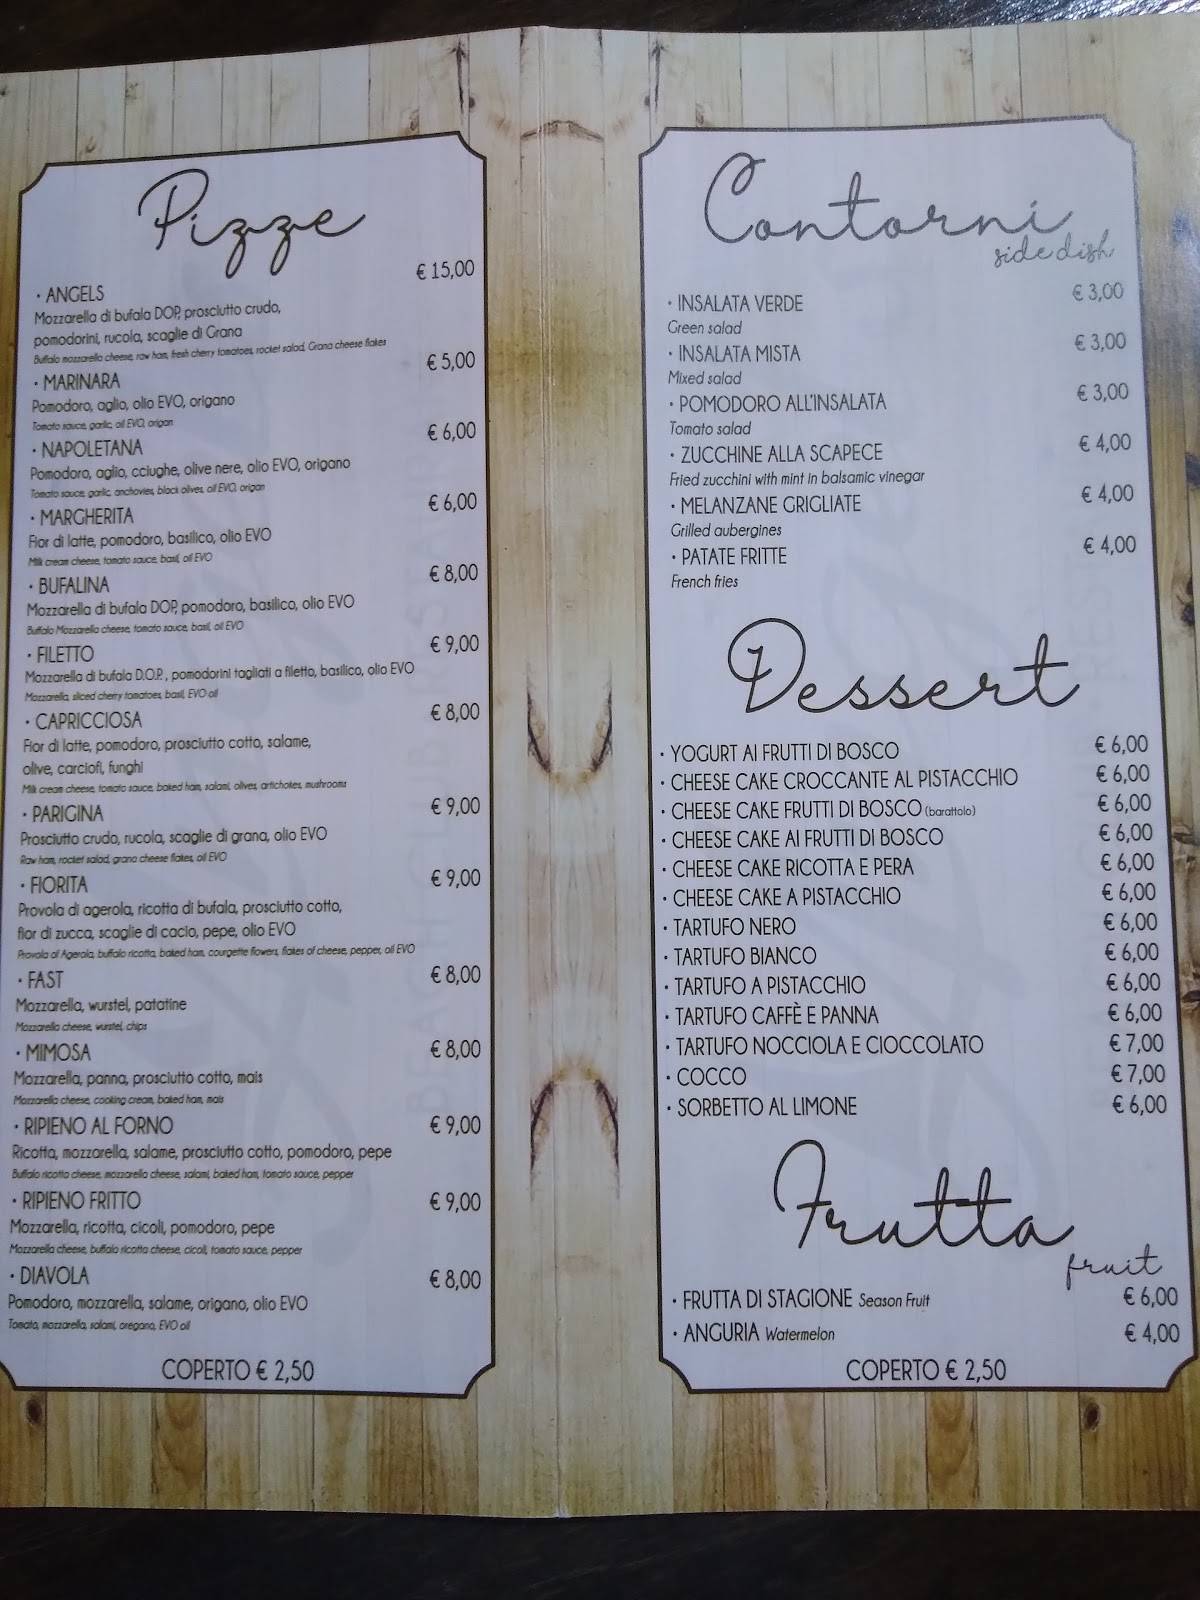 Pizze
• ANGELS € 15,00
Mozzarella di bufala DOP, prosciutto crudo,
pomodorini, rucola, scaglie di Grana
Buffalo mozzarella cheese, raw ham, fresh cherry tomatoes, rocket salad, Grana cheese flakes
• MARINARA € 5,00
Pomodoro, aglio, olio EVO, origano
Tomato sauce, garlic, oil EVO, origan
• NAPOLETANA € 6,00
Pomodoro, aglio, cciughe, olive nere, olio EVO, origano
Tomato sauce, garlic, anchovies, black olives, oil EVO, origan
• MARGHERITA € 6,00
Fior di latte, pomodoro, basilico, olio EVO
Milk cream cheese, tomato sauce, basil, oil EVO
• BUFALINA € 8,00
Mozzarella di bufala DOP, pomodoro, basilico, olio EVO
Buffalo Mozzarella cheese, tomato sauce, basil, oil EVO
• FILETTO € 9,00
Mozzarella di bufala D.O.P. , pomodorini tagliati a filetto, basilico, olio EVO
Mozzarella, sliced cherry tomatoes, basil, EVO oil
• CAPRICCIOSA € 8,00
Fior di latte, pomodoro, prosciutto cotto, salame,
olive, carciofi, funghi
Milk cream cheese, tomato sauce, baked ham, salami, olives, artichokes, mushrooms
• PARIGINA € 9,00
Prosciutto crudo, rucola, scaglie di grana, olio EVO
Raw ham, rocket salad, grana cheese flakes, oil EVO
• FIORITA € 9,00
Provola di agerola, ricotta di bufala, prosciutto cotto,
fior di zucca, scaglie di cacio, pepe, olio EVO
Provola of Agerola, buffalo ricotta, baked ham, courgette flowers, flakes of cheese, pepper, oil EVO
• FAST € 8,00
Mozzarella, wurstel, patatine
Mozzarella cheese, wurstel, chips
• MIMOSA € 8,00
Mozzarella, panna, prosciutto cotto, mais
Mozzarella cheese, cooking cream, baked ham, mais
• RIPIENO AL FORNO € 9,00
Ricotta, mozzarella, salame, prosciutto cotto, pomodoro, pepe
Buffalo ricotta cheese, mozzarella cheese, salami, baked ham, tomato sauce, pepper
• RIPIENO FRITTO € 9,00
Mozzarella, ricotta, cicoli, pomodoro, pepe
Mozzarella cheese, buffalo ricotta cheese, cicoli, tomato sauce, pepper
• DIAVOLA € 8,00
Pomodoro, mozzarella, salame, origano, olio EVO
Tomato, mozzarella, salami, oregano, EVO oil
COPERTO € 2,50
Contorni
side dish
• INSALATA VERDE € 3,00
Green salad
• INSALATA MISTA € 3,00
Mixed salad
• POMODORO ALL'INSALATA € 3,00
Tomato salad
• ZUCCHINE ALLA SCAPECE € 4,00
Fried zucchini with mint in balsamic vinegar
• MELANZANE GRIGLIATE € 4,00
Grilled aubergines
• PATATE FRITTE € 4,00
French fries
Dessert
• YOGURT AI FRUTTI DI BOSCO € 6,00
• CHEESE CAKE CROCCANTE AL PISTACCHIO € 6,00
• CHEESE CAKE FRUTTI DI BOSCO (barattolo) € 6,00
• CHEESE CAKE AI FRUTTI DI BOSCO € 6,00
• CHEESE CAKE RICOTTA E PERA € 6,00
• CHEESE CAKE A PISTACCHIO € 6,00
• TARTUFO NERO € 6,00
• TARTUFO BIANCO € 6,00
• TARTUFO A PISTACCHIO € 6,00
• TARTUFO CAFFÈ E PANNA € 6,00
• TARTUFO NOCCIOLA E CIOCCOLATO € 7,00
• COCCO € 7,00
• SORBETTO AL LIMONE € 6,00
Frutta
fruit
• FRUTTA DI STAGIONE Season Fruit € 6,00
• ANGURIA Watermelon € 4,00
COPERTO € 2,50